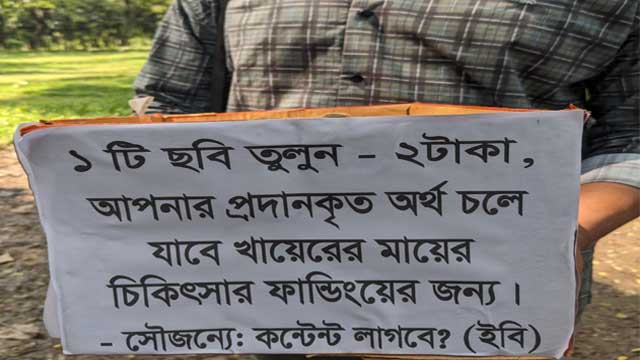 ১ টি ছবি তুলুন - ২টাকা,
আপনার প্রদানকৃত অর্থ চলে
যাবে খায়েরের মায়ের
চিকিৎসার ফান্ডিংয়ের জন্য ।
- সৌজন্যে: কন্টেন্ট লাগবে? (ইবি)